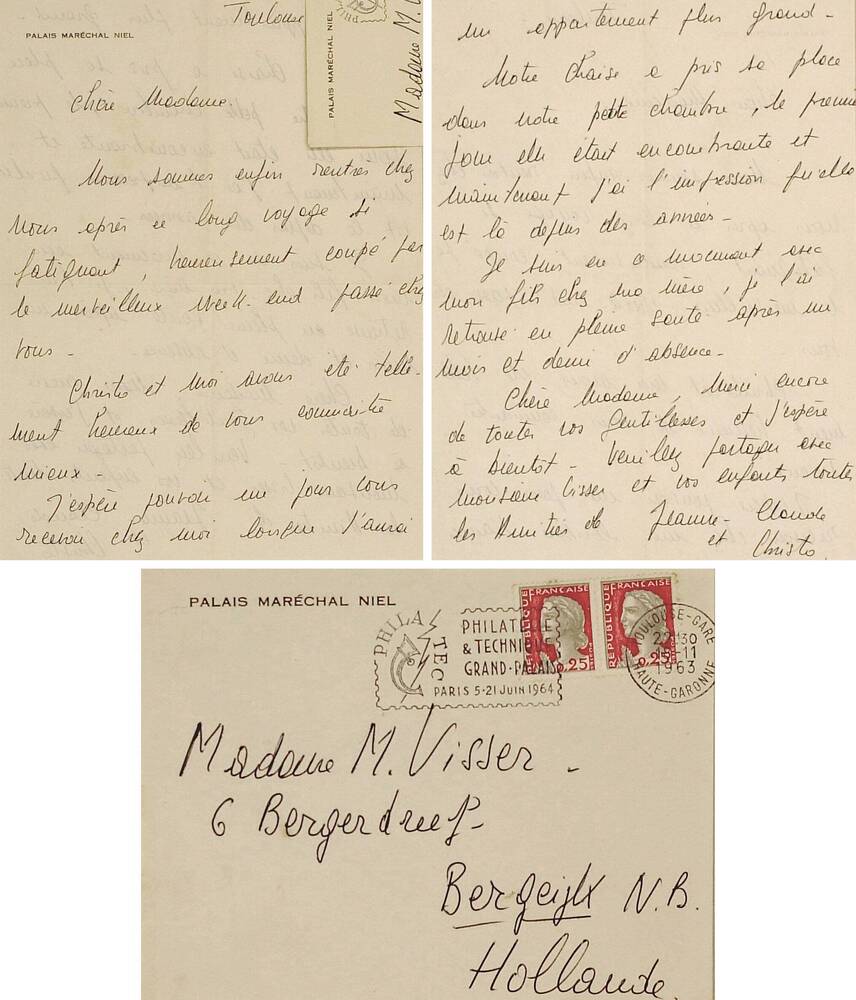 Toulouse
PALAIS MARÉCHAL NIEL
PALAIS MARÉCHAL NIEL
Madame M. V
Chère Madame.
Nous sommes enfin rentrés chez
nous après ce long voyage si
fatiguant, heureusement coupé par
le merveilleux week-end passé chez
vous -
Christo et moi avons eté telle-
ment heureux de vous connaitre
mieux -
J'espère pouvoir un jour vous
recevoir chez moi lorsque j'aurai
un appartement plus grand -
Notre Chaise a pris sa place
dans notre petite chambre, le premier
jour elle était encombrante et
maintenant j'ai l'impression qu'elle
est là depuis des années -
Je suis en ce moment avec
mon fils chez ma mère, je l'ai
retrouvé en pleine santé après un
mois et demi d'absence -
Chère Madame, Merci encore
de toutes vos gentillesses et j'espère
à bientot - Veuillez partager avec
Monsieur Visser et vos enfants toutes
les Amitiés de Jeanne-Claude
et Christo.
PALAIS MARÉCHAL NIEL
PHILATEC
PHILATELIE
& TECHNIQUE
GRAND-PALAIS
PARIS 5-21 JUIN 1964
RÉPUBLIQUE FRANÇAISE
0,25
RÉPUBLIQUE FRANÇAISE
0,25
TOULOUSE-GARE
22H30
-11
1963
HAUTE-GARONNE
Madame M. Visser -
6 Bergerdreef -
Bergeijk N.B.
Hollande.